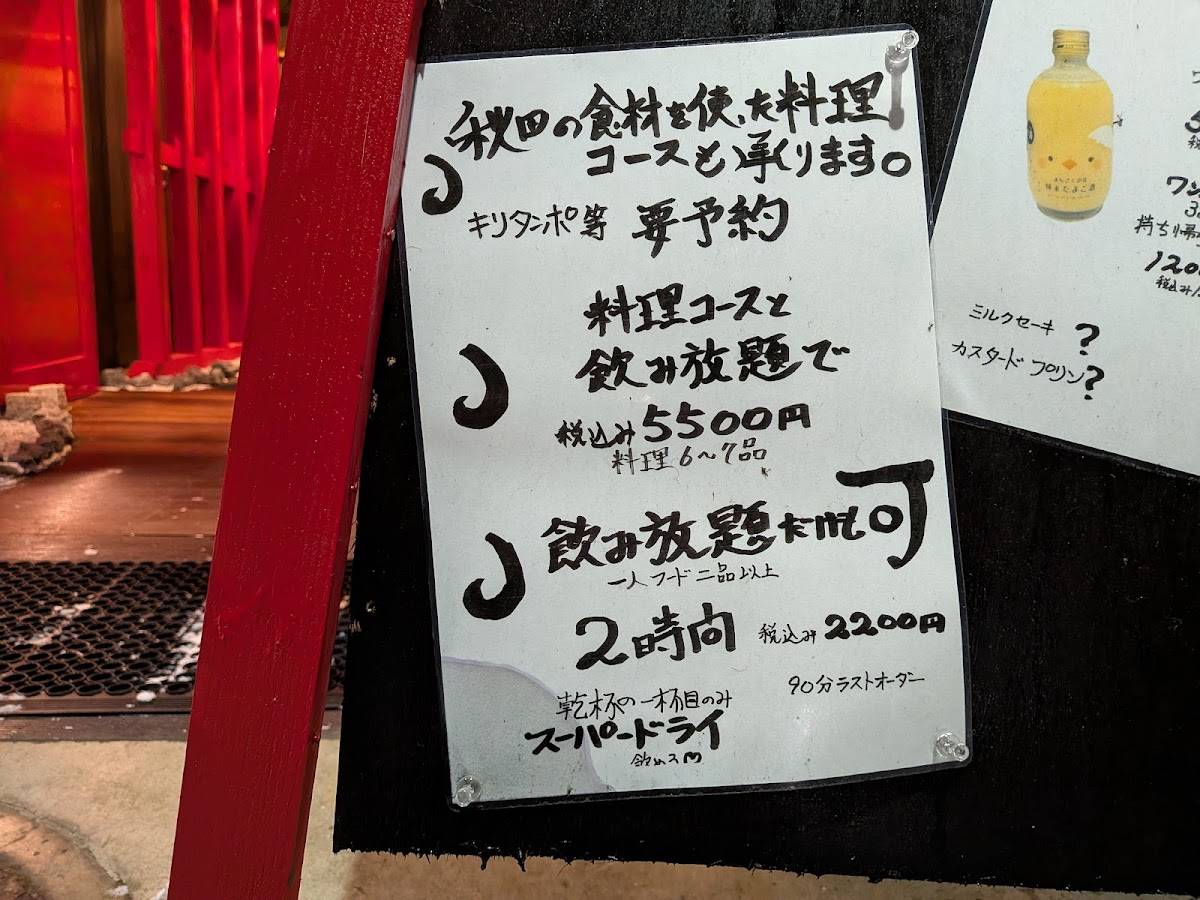 秋田の食材を使った料理
コースも承ります。
キリタンポ等 要予約
料理コースと
飲み放題で
税込み5500円
料理6〜7品
飲み放題だけも可
一人フード二品以上
2時間 税込み2200円
90分ラストオーダー
乾杯の一杯目のみ
スーパードライ
飲めます
ミルクセーキ?
カスタードプリン?
持ち帰
税込み